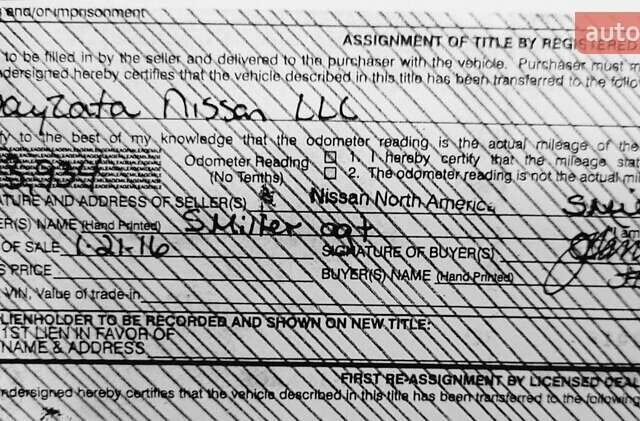 and/or imprisonment
auto
ASSIGNMENT OF TITLE BY REGISTERED
to be filled in by the seller and delivered to the purchaser with the vehicle. Purchaser must
dersigned hereby certifies that the vehicle described in this title has been transferred to the follo
ayzata Nissan LLC
fy to the best of my knowledge that the odometer reading is the actual mileage of the
3,934 Odometer Reading 1. I hereby certify that the mileage stat
(No Tenths) 2. The odometer reading is not the actual mil
TURE AND ADDRESS OF SELLER(S) Nissan North America
ER(S) NAME (Hand Printed) S Miller agt
OF SALE 1-21-16 SIGNATURE OF BUYER(S)
PRICE BUYER(S) NAME (Hand Printed)
VIN, Value of trade-in
LIENHOLDER TO BE RECORDED AND SHOWN ON NEW TITLE:
1ST LIEN IN FAVOR OF
NAME & ADDRESS
FIRST RE-ASSIGNMENT BY LICENSED DEAL
ndersigned hereby certifies that the vehicle described in this title has been transferred to the following